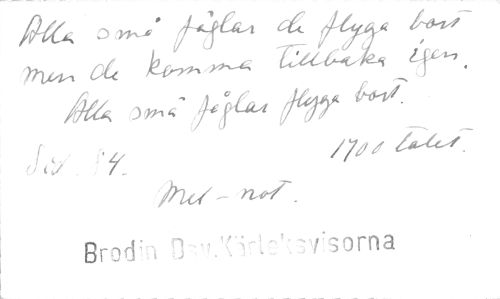 Alla små fåglar de flyga bort
men de komma tillbaka igen.
Alla små fåglar flyga bort.
Sid. 54. 1700 talet.
Mel-not.
Brodin Dsv.Kärleksvisorna